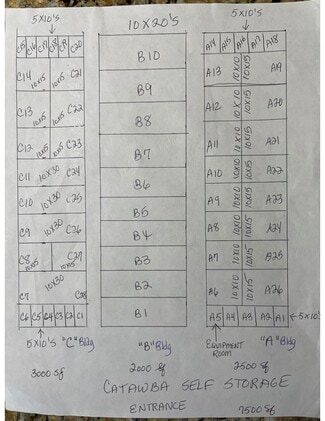 5X10'S
10X20'S
5X10'S
C15 C16 C17 C18 C19 C20
B10
A14 A15 A16 A17 A18
C14 10X15 10X15 C21
B9
A13 10X10 10X15 A19
C13 10X15 10X15 C22
B8
A12 10X10 10X15 A20
C12 10X15 10X15 C23
B7
A11 10X10 10X15 A21
C11 10X30 C24
B6
A10 10X10 10X15 A22
C10 10X30 C25
B5
A9 10X10 10X15 A23
C9 10X30 C26
B4
A8 10X10 10X15 A24
C8 10X15 10X15 C27
B3
A7 10X10 10X15 A25
C7 10X30 C28
B2
A6 10X10 10X15 A26
C6 C5 C4 C3 C2 C1
B1
A5 A4 A3 A2 A1
5X10'S
5X10'S "C" Bldg
"B" Bldg
EQUIPMENT ROOM
"A" Bldg
3000 Sf
2000 Sf
2500 Sf
CATAWBA SELF STORAGE
ENTRANCE
7500 Sf